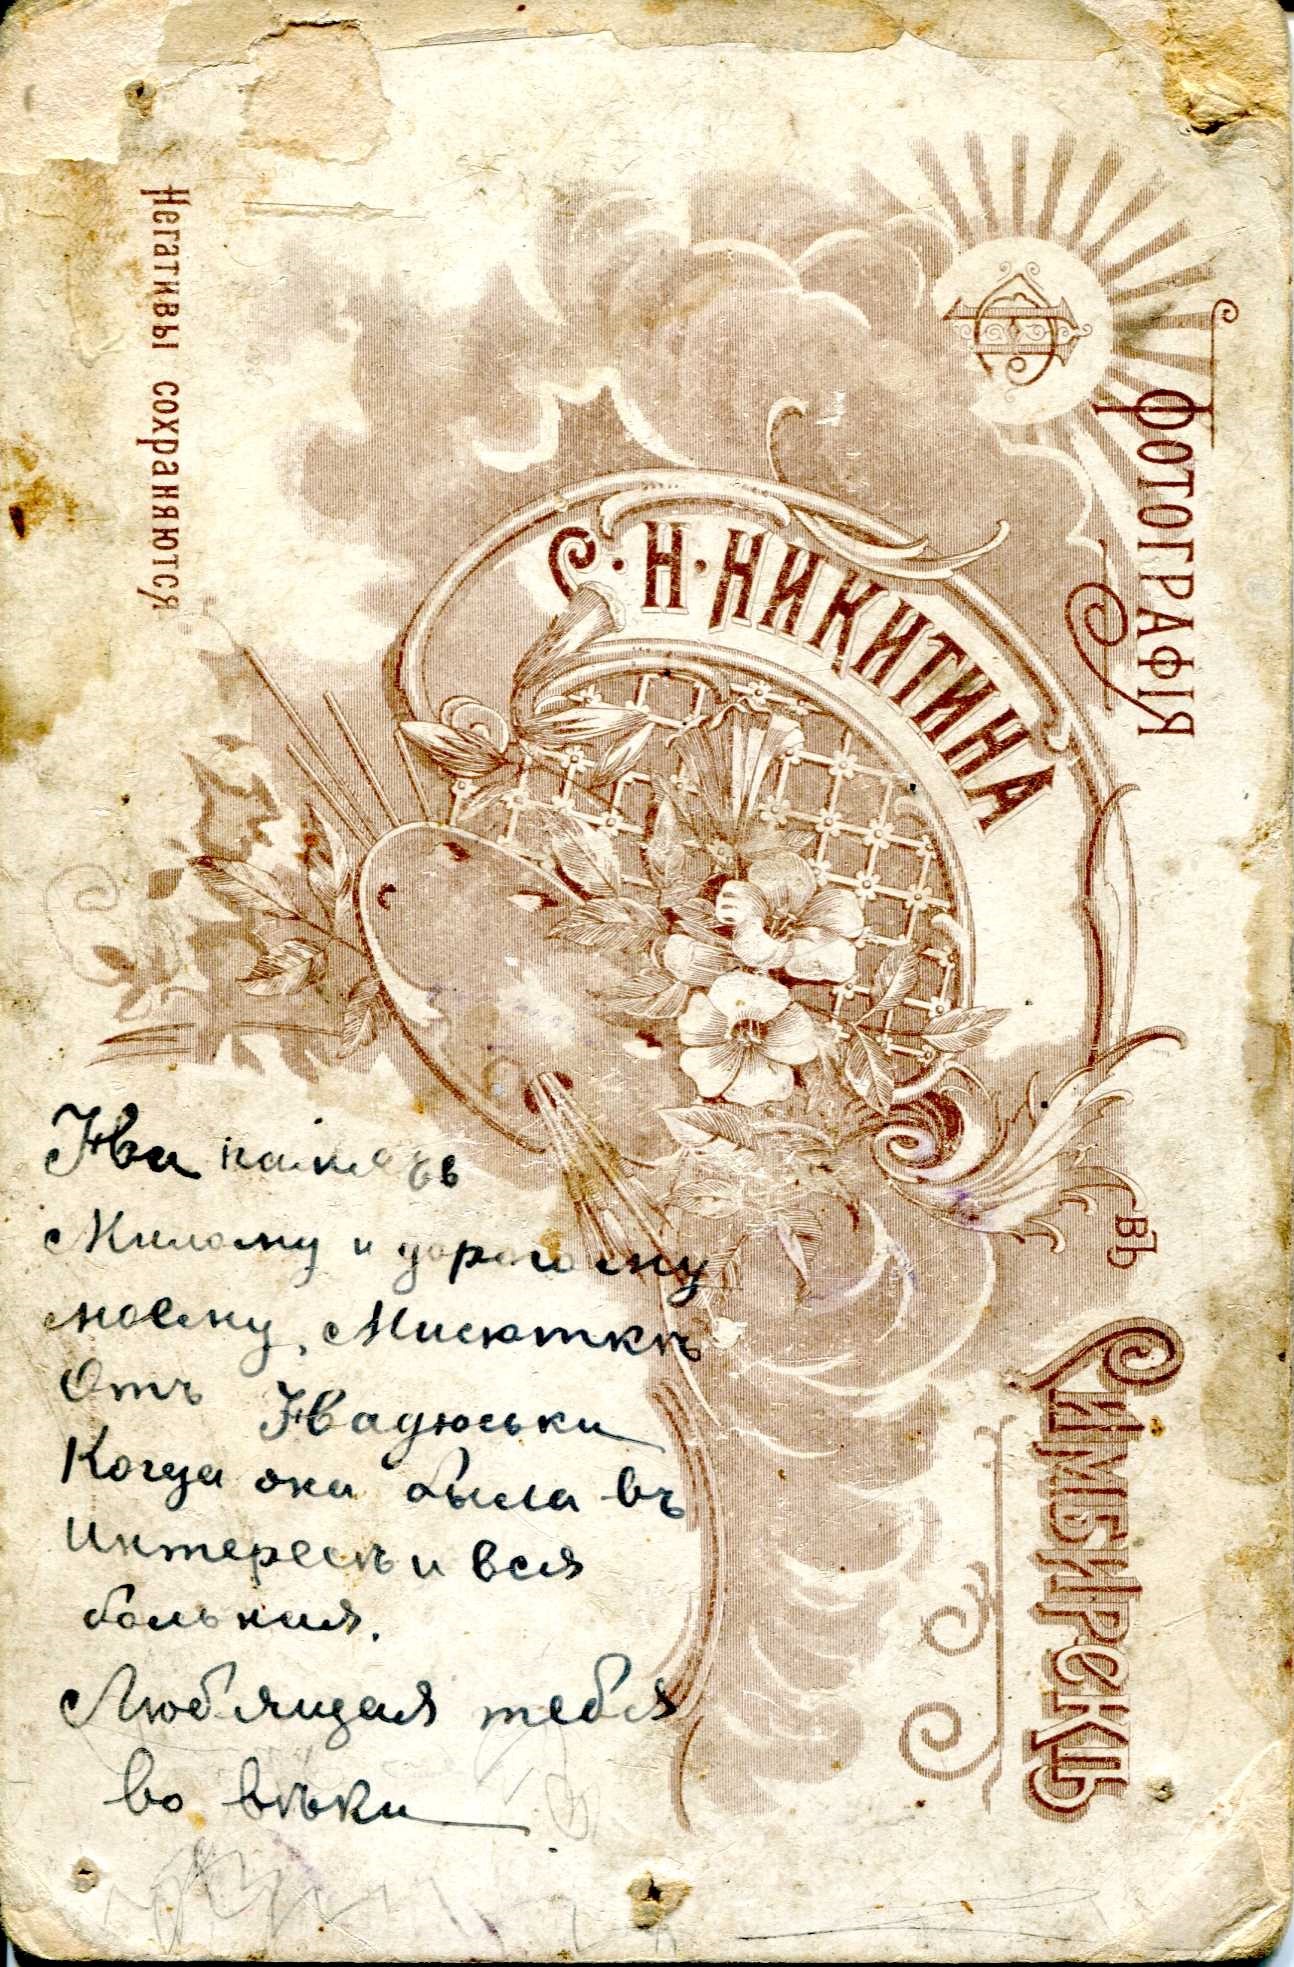 Фотографія
С. Н. Никитина
въ Симбирскѣ
Негативы сохраняются
На память
Милому и дорогому
моему Мисюткѣ
Отъ Надюськи
Когда она была въ
интересѣ и вся
больная.
Любящая тебя
во вѣки